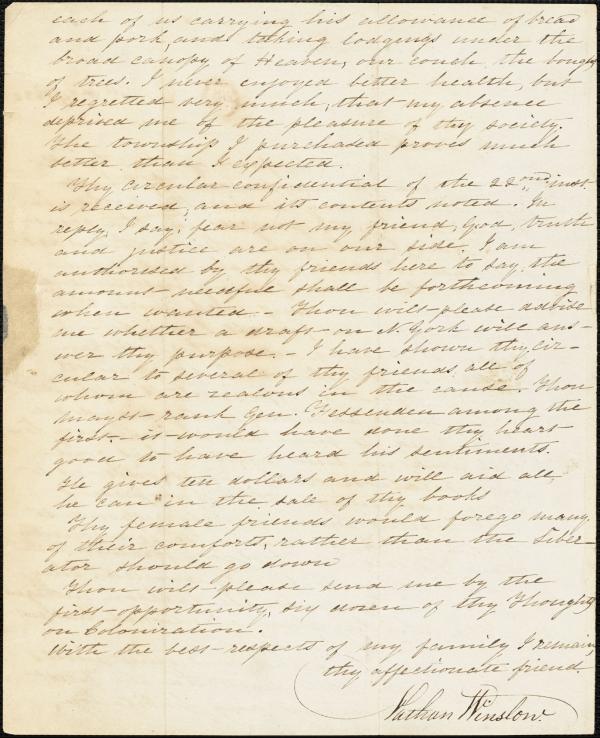 each of us carrying his allowance of bread
and pork, and taking lodgings under the
broad canopy of Heaven, our couch, the boughs
of trees. I never enjoyed better health, but
I regretted very much, that my absence
deprived me of the pleasure of thy society.
The township I purchased proves much
better than I expected.
Thy circular confidential of the 22nd inst.
is received, and its contents noted. In
reply, I say, fear not my friend, God, truth
and justice are on our side. I am
authorised by thy friends here to say, the
amount needful shall be forthcoming
when wanted. - Thou wilt please advise
me whether a draft on N. York will ans-
wer thy purpose. - I have shown thy cir-
cular to several of thy friends, all of
whom are zealous in the cause. Thou
mayst rank Gen. Fessenden among the
first - it would have done thy heart
good to have heard his sentiments.
He gives ten dollars and will aid all
he can in the sale of thy books
Thy female friends would forego many
of their comforts, rather than the Liber-
ator should go down
Thou wilt please send me by the
first opportunity, six dozen of thy Thoughts
on Colonization.
With the best respects of my family I remain,
thy affectionate friend.
Nathan Winslow.